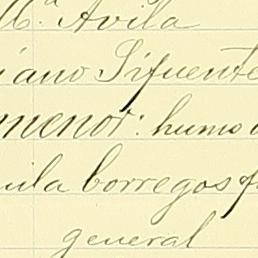 Mª Avila
iano Sifuente
menor: humo
uila borregos
general